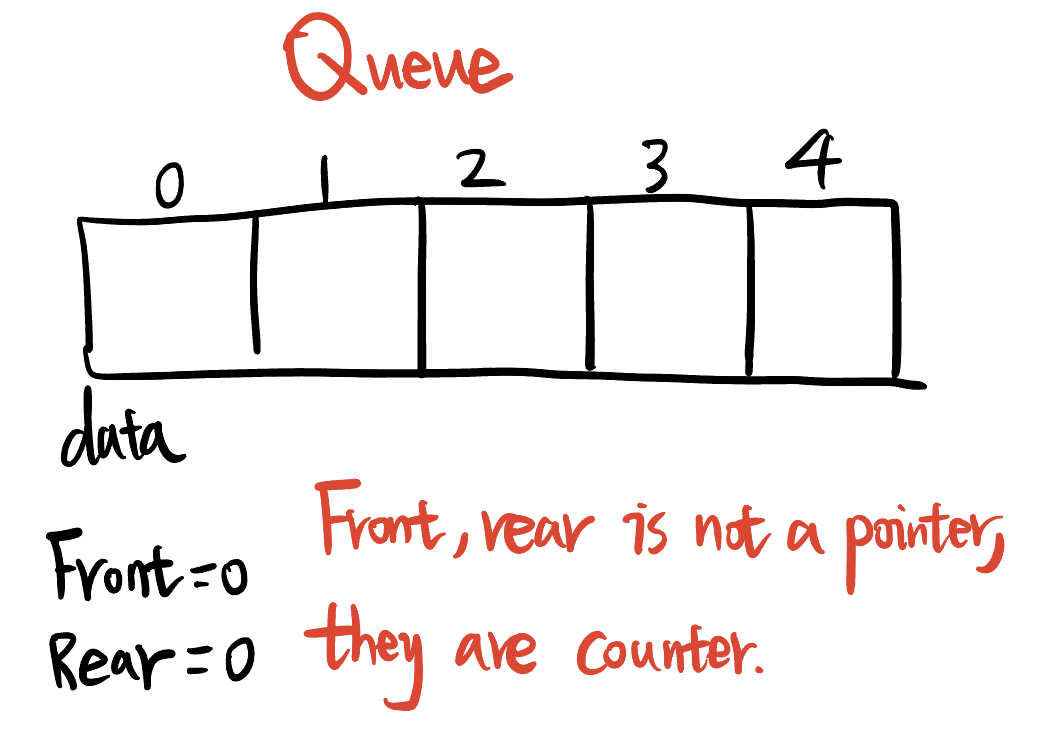 Queue
0 1 2 3 4
data
Front=0
Rear=0
Front, rear is not a pointer,
they are counter.